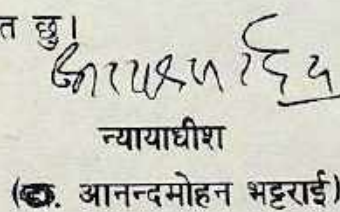 त छु।
न्यायाधीश
(डा. आनन्दमोहन भट्टराई)